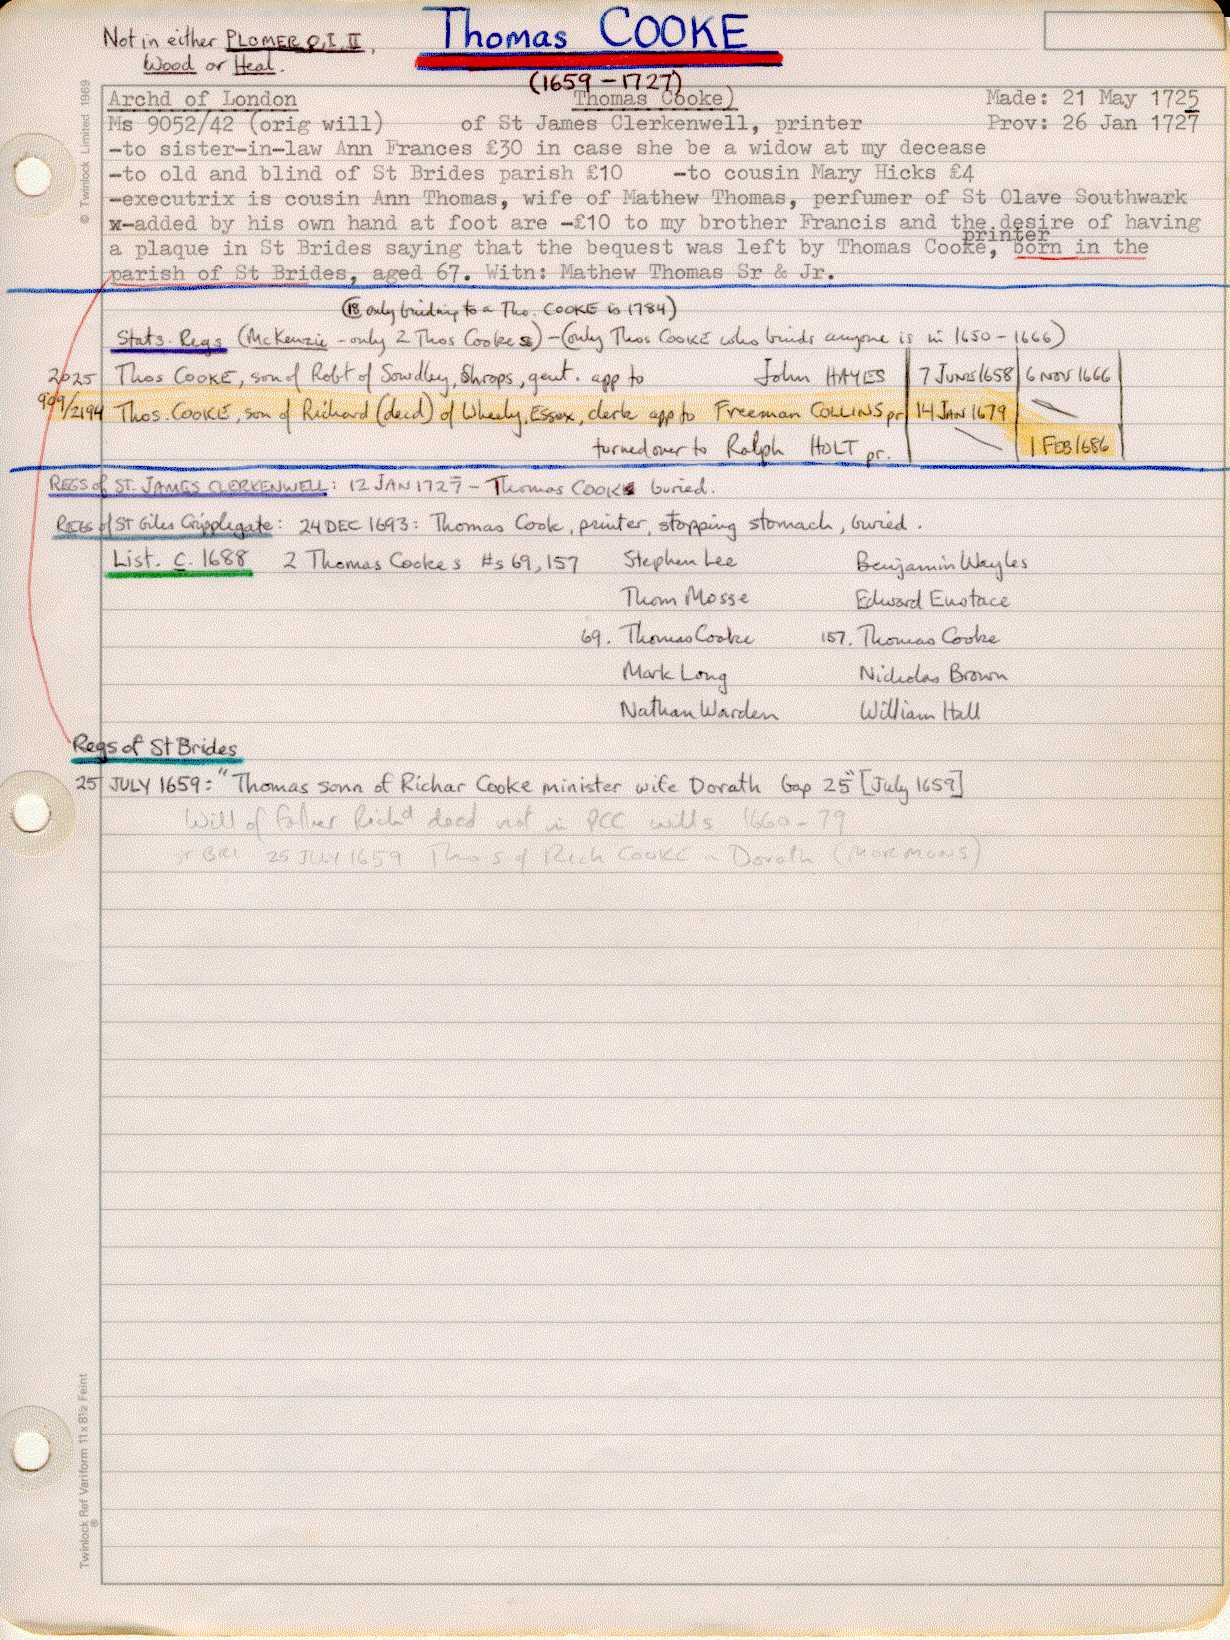 Not in either PLOMER 0, I, II,
Wood or Heal.
Thomas COOKE
(1659 - 1727)
© Twinlock Limited 1969
Archd of London Thomas Cooke) Made: 21 May 1725
Ms 9052/42 (orig will) of St James Clerkenwell, printer Prov: 26 Jan 1727
-to sister-in-law Ann Frances £30 in case she be a widow at my decease
-to old and blind of St Brides parish £10 -to cousin Mary Hicks £4
-executrix is cousin Ann Thomas, wife of Mathew Thomas, perfumer of St Olave Southwark
x-added by his own hand at foot are -£10 to my brother Francis and the desire of having
printer
a plaque in St Brides saying that the bequest was left by Thomas Cooke, born in the
parish of St Brides, aged 67. Witn: Mathew Thomas Sr & Jr.
(18 only binding to a Tho. COOKE is 1784)
Stats. Regs (McKenzie - only 2 Thos Cookes) - (only Thos COOKE who binds anyone is in 1650 - 1666)
2025 Thos COOKE, son of Robt of Sowdley, Shrops, gent. app to John HAYES 7 JUNE 1658 6 NOV 1666
909/2194 Thos. COOKE, son of Richard (decd) of Wheely, Essex, clerk app to Freeman COLLINS pr 14 JAN 1679
turned over to Ralph HOLT pr. 1 FEB 1686
REGS of ST. JAMES CLERKENWELL: 12 JAN 1727 - Thomas COOK buried.
REGS of ST Giles Cripplegate: 24 DEC 1693: Thomas Cook, printer, stopping stomach, buried.
List. c. 1688 2 Thomas Cookes #s 69, 157 Stephen Lee Benjamin Wayles
Thom Mosse Edward Eustace
69. Thomas Cooke 157. Thomas Cooke
Mark Long Nicholas Brown
Nathan Warden William Hall
Regs of St Brides
25 JULY 1659: "Thomas sonn of Richar Cooke minister wife Dorath Gap 25" [July 1659]
Will of father Richd decd not in PCC wills 1660 - 79
ST BRI 25 JULY 1659 Tho s of Rich COOKE & Dorath (MORMONS)
Twinlock Ref Variform 11 x 8½ Feint
®